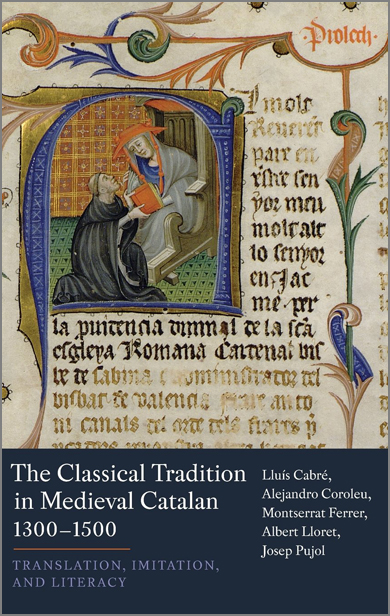 Prolech
molt
pare en
sen
yor meu
molt alt
lo senyor
en Jac
me. per
la divinal de la scã
esgleya Romana Cardenal bis
be de sabina e administrador del
bisbat de valencia frare anto
ni canals del orde dels frares
The Classical Tradition
in Medieval Catalan
1300–1500
TRANSLATION, IMITATION,
AND LITERACY
Lluís Cabré,
Alejandro Coroleu,
Montserrat Ferrer,
Albert Lloret,
Josep Pujol